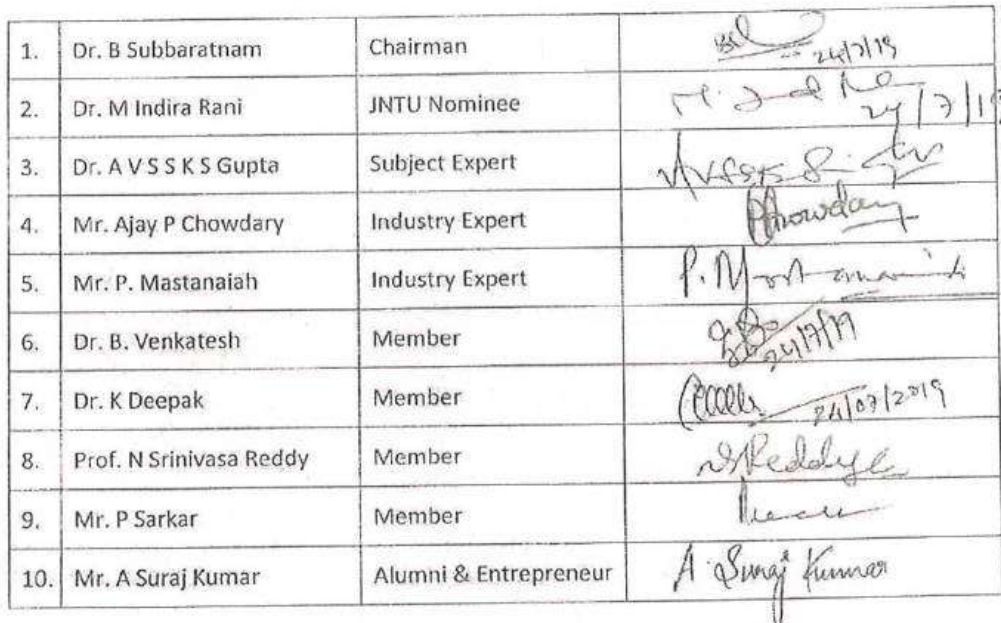 1. Dr. B Subbaratnam Chairman 24/7/19
2. Dr. M Indira Rani JNTU Nominee 24/7/19
3. Dr. A V S S K S Gupta Subject Expert
4. Mr. Ajay P Chowdary Industry Expert Chowdary
5. Mr. P. Mastanaiah Industry Expert
6. Dr. B. Venkatesh Member 24/7/19
7. Dr. K Deepak Member 24/07/2019
8. Prof. N Srinivasa Reddy Member
9. Mr. P Sarkar Member
10. Mr. A Suraj Kumar Alumni & Entrepreneur A Suraj Kumar